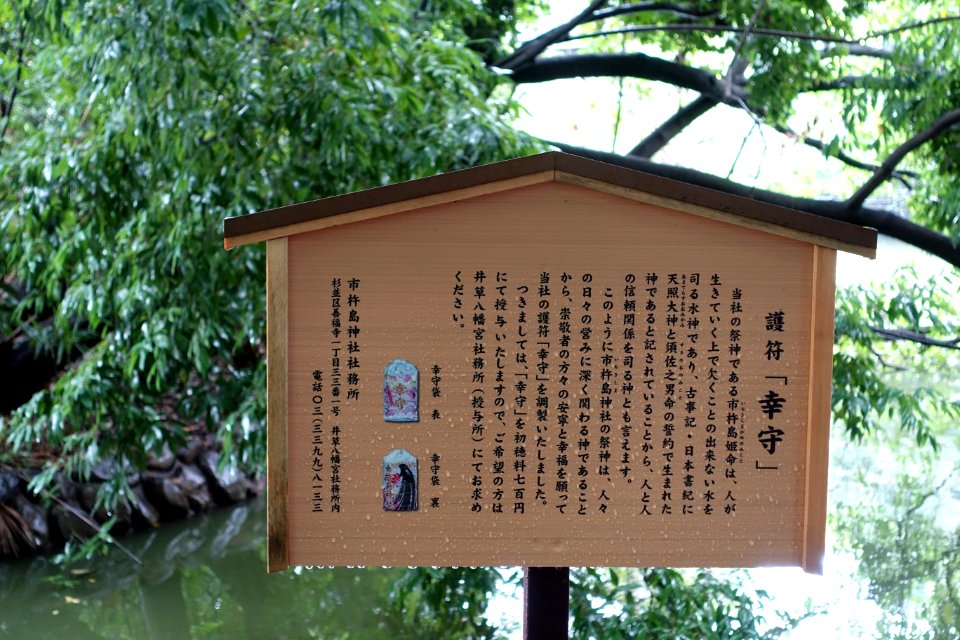 護符「幸守」
当社の祭神である市杵島姫命は、人が
生きていく上で欠くことの出来ない水を
司る水神であり、古事記・日本書紀に
天照大神と須佐之男命の誓約で生まれた
神であると記されていることから、人と人
の信頼関係を司る神とも言えます。
このように市杵島神社の祭神は、人々
の日々の営みに深く関わる神であること
から、崇敬者の方々の安寧と幸福を願って
当社の護符「幸守」を調製いたしました。
つきましては、「幸守」を初穂料七百円
にて授与いたしますので、ご希望の方は
井草八幡宮社務所（授与所）にてお求め
ください。
幸守袋 表
幸守袋 裏
市杵島神社社務所
杉並区善福寺一丁目三三番一号 井草八幡宮社務所内
電話〇三（三三九九）八一三三